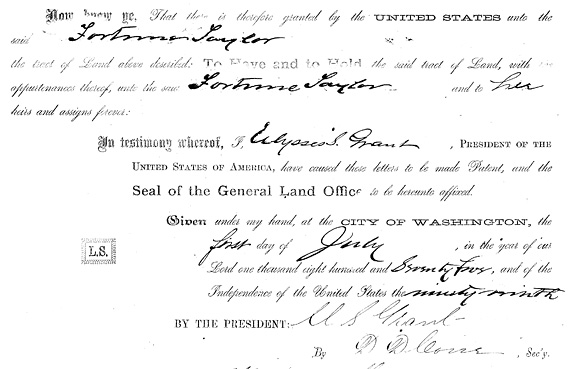 Now know ye, That there is therefore granted by the UNITED STATES unto the
said Fortune Taylor
the tract of Land above described: To Have and to Hold the said tract of Land, with the
appurtenances thereof, unto the said Fortune Taylor and to her
heirs and assigns forever:
In testimony whereof, I, Ulysses S. Grant, PRESIDENT OF THE
UNITED STATES OF AMERICA, have caused these letters to be made Patent, and the
Seal of the General Land Office to be hereunto affixed.
Given under my hand, at the CITY OF WASHINGTON, the
first day of July, in the year of our
L.S.
Lord one thousand eight hundred and Seventy Five, and of the
Independence of the United States the ninety ninth
BY THE PRESIDENT: U S Grant
By D D Cone, Sec'y.